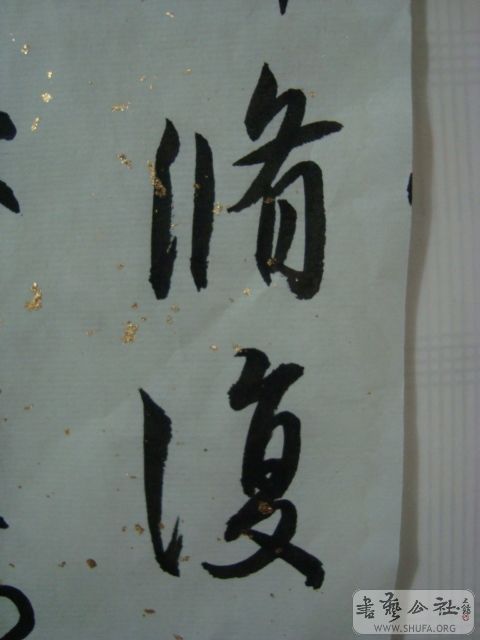 脩
復
書藝公社
WWW.SHUFA.ORG